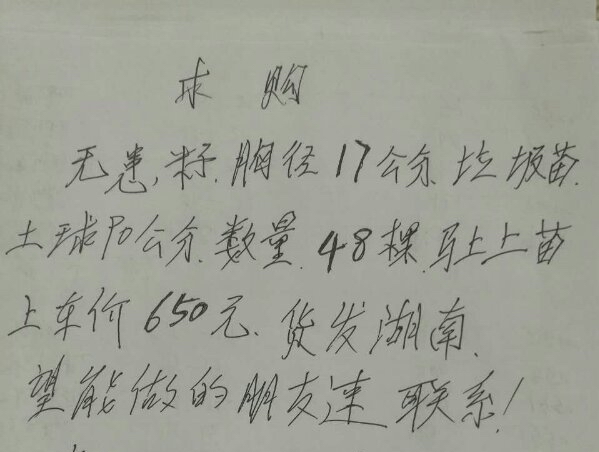 求购
无患,籽.胸径17公分.垃圾苗.
土球90公分.数量.48棵.马上上苗
上车价650元、货发湖南.
望能做的朋友速联系!